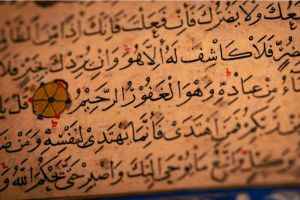 وَلَا يَضُرُّكَ فَاِنْ فَعَلْتَ فَاِنَّكَ اِذًا مِنَ
بِضُرٍّ فَلَا كَاشِفَ لَهُ اِلَّا هُوَ وَاِنْ يُرِدْكَ بِخَيْرٍ فَلَا
مِنْ عِبَادِهِ وَهُوَ الْغَفُورُ الرَّحِيمُ قُلْ يَا
رَبِّكُمْ فَمَنِ اهْتَدٰى فَاِنَّمَا يَهْتَدِي لِنَفْسِهِ وَمَنْ
بِوَكِيلٍ وَاتَّبِعْ مَا يُوحٰى اِلَيْكَ وَاصْبِرْ حَتّٰى يَحْكُمَ اللّٰهُ وَ